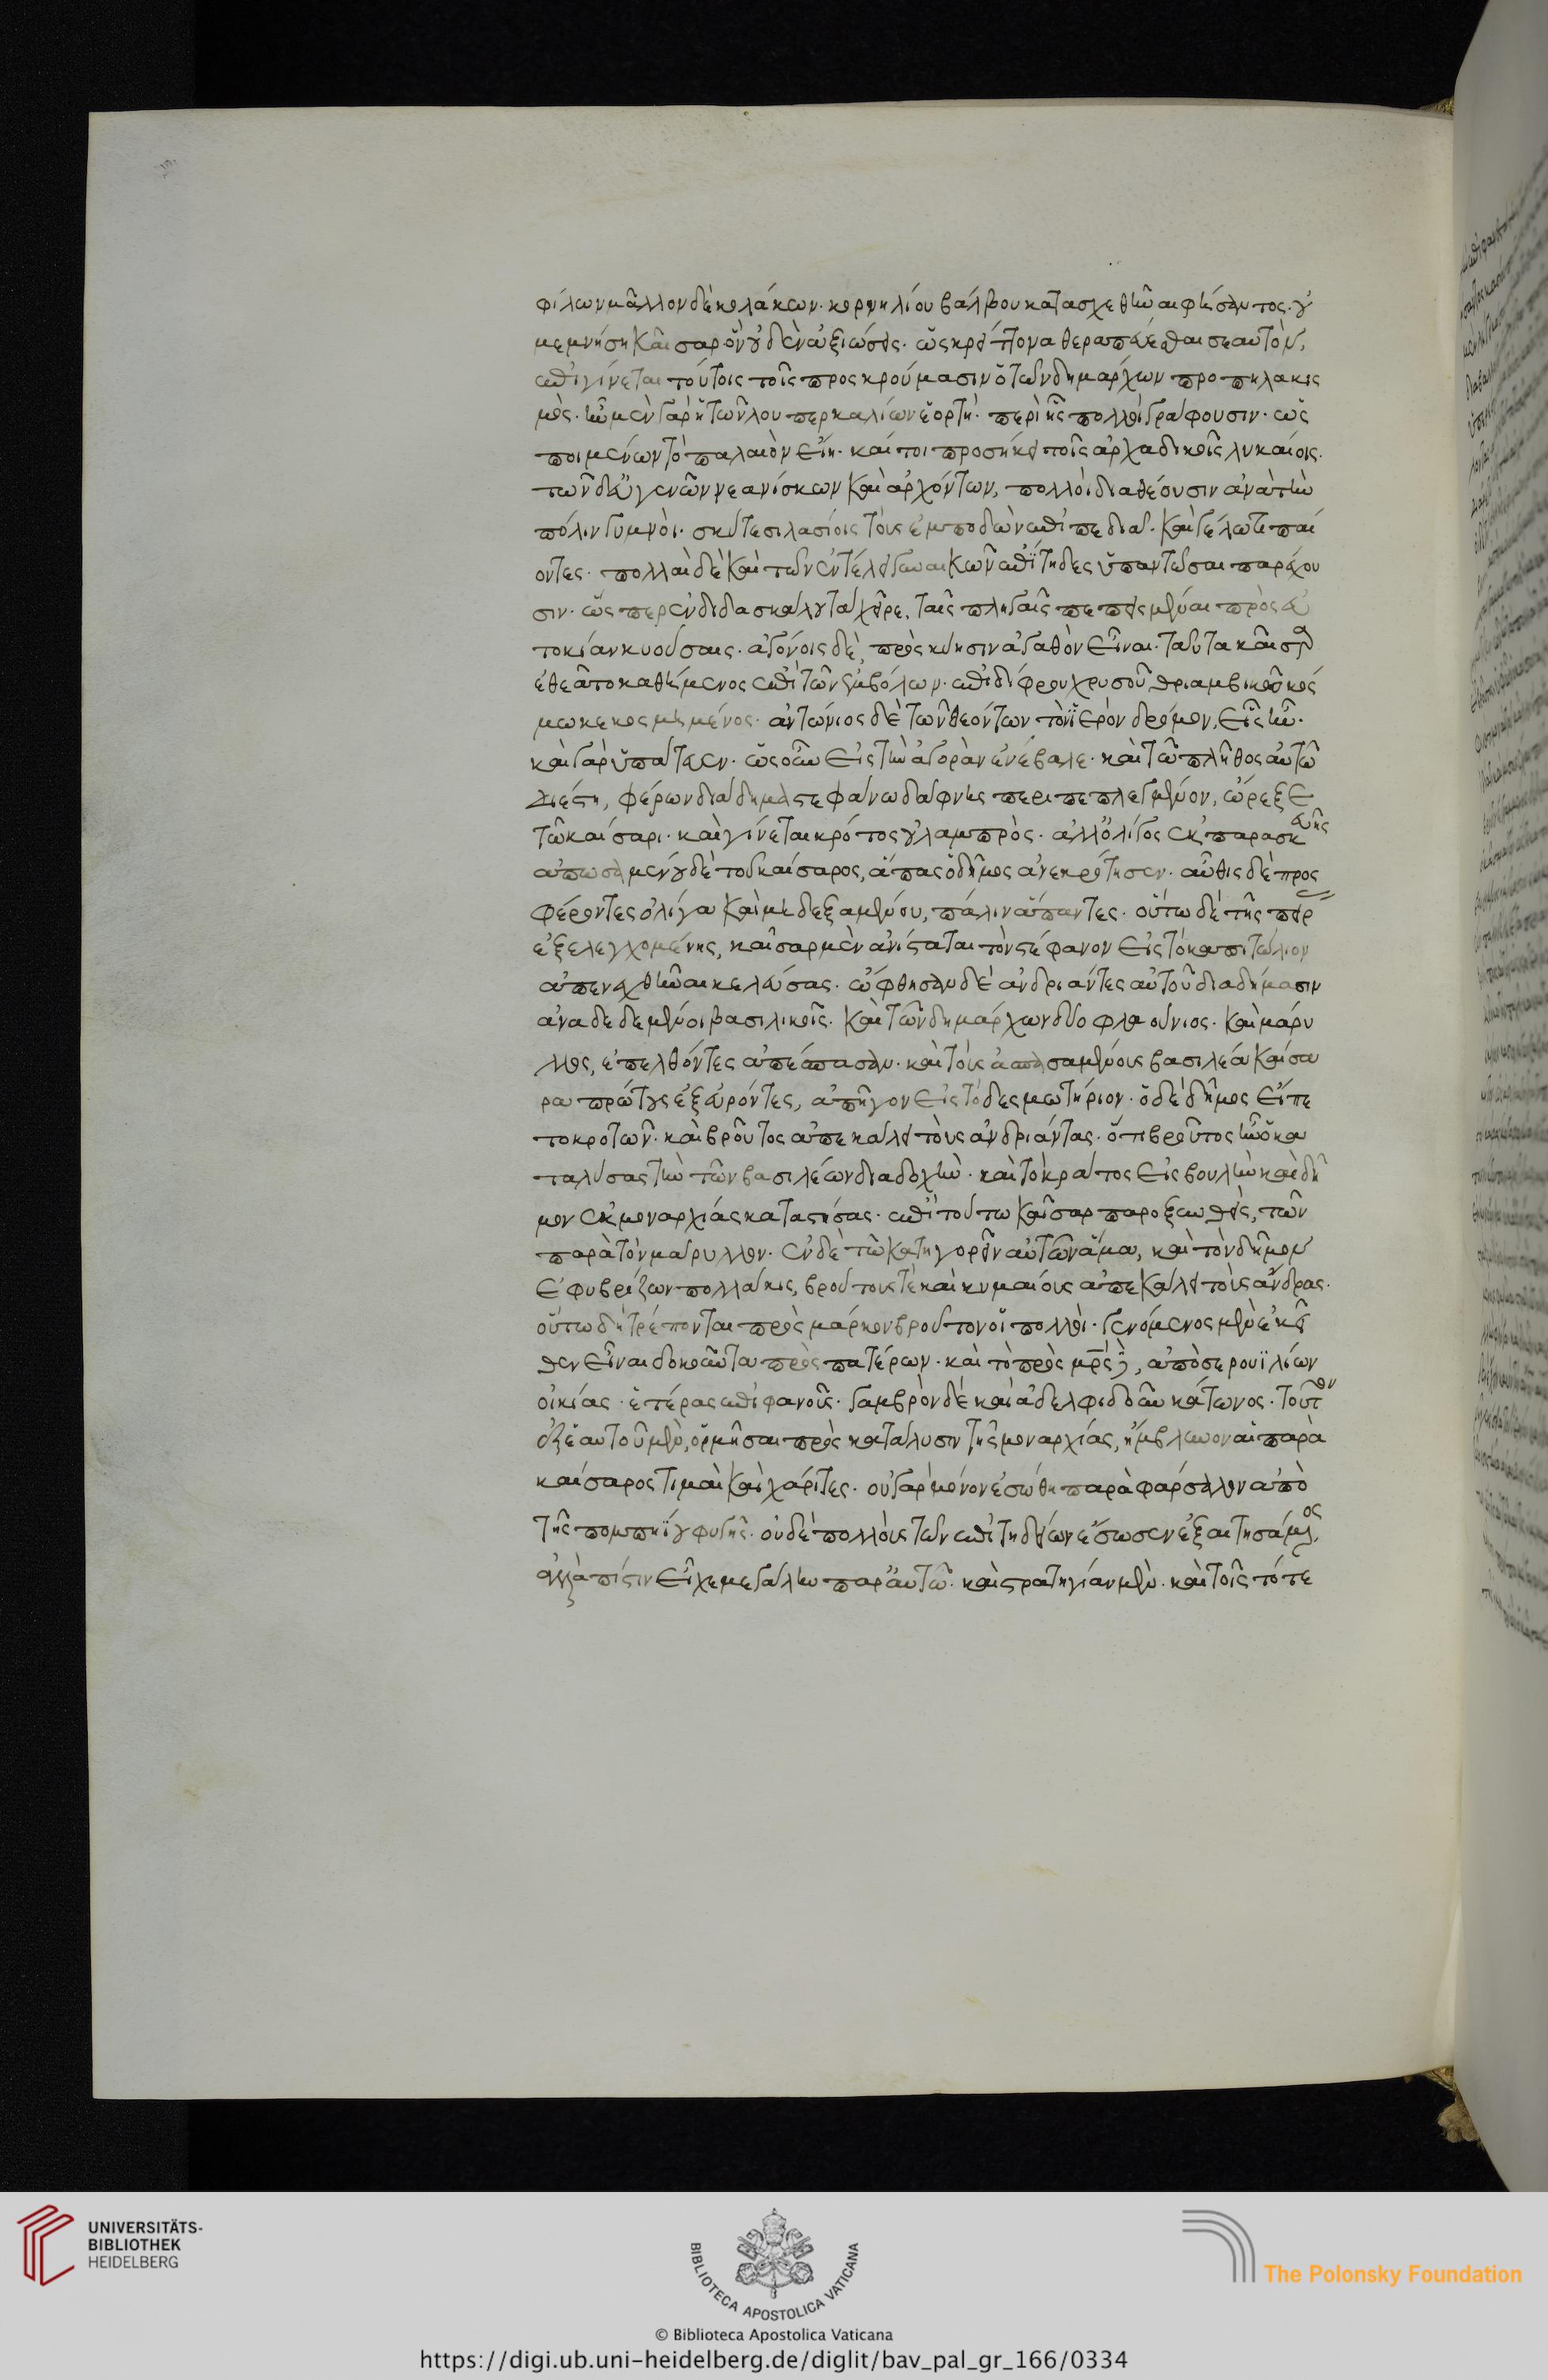 φίλων μᾶλλον δὲ κολάκων· κορνηλίου βάλβου κατασχεθῆναι φήσαντος· οὐ
μεμνήση καῖσαρ ὢν οὐδὲν ἀξιώσεις· ὡς κρείττονα θεραπεύεσθαι σεαυτὸν,
ἐπιγίνεται τούτοις τοῖς προσκρούμασιν ὁ τῶν δημάρχων προπηλακις
μὸς· ἦν μὲν γὰρ ἡ τῶν λουπερκαλίων ἑορτὴ· περὶ ἧς πολλοὶ γράφουσιν· ὡς
ποιμένων τὸ παλαιὸν εἴη· καί τοι προσήκει τοῖς ἀρχαδικοῖς λυκαίοις·
τῶν δ' εὐγενῶν νεανίσκων καὶ ἀρχόντων, πολλοὶ διαθέουσιν ἀνὰ τὴν
πόλιν γυμνοὶ· σκύτεσι λασίοις τοὺς ἐμποδὼν ἐπὶ πεδιᾶ· καὶ γέλωτι παί
οντες· πολλαὶ δὲ καὶ τῶν ἐν τέλει γυναικῶν ἐπίτηδες ὑπαντῶσαι παρέχου
σιν· ὥσπερ ἐν διδασκάλου τὰ χεῖρε, ταῖς πληγαῖς πεπεισμέναι πρὸς εὐ
τοκίαν κυούσαις· ἀγόνοις δὲ, πρὸς κύησιν ἀγαθὸν εἶναι· ταῦτα καῖσαρ
ἐθεᾶτο καθήμενος ἐπὶ τῶν ἐμβόλων· ἐπὶ δίφρου χρυσοῦ, θριαμβικῶ κός
μω κεκοσμημένος· ἀντώνιος δὲ τῶν θεόντων τὸν ἱερὸν δρόμον, εἷς ἦν·
καὶ γὰρ ὑπάτευεν· ὡς οὖν εἰς τὴν ἀγορὰν ἐνέβαλε· καὶ τῶ πλῆθος αὐτῶ
διέστη, φέρων διάδημα στεφάνω δάφνης περιπεπλεγμένον, ὤρεξε
τῶ καίσαρι· καὶ γίνεται κρότος οὐ λαμπρὸς· ἀλλ' ὀλίγος ἐκ παρασκευῆς
ἀπωσαμένου δὲ τοῦ καίσαρος, ἅπας ὁ δῆμος ἀνεκρότησεν· αὖθις δὲ προς
φέροντες ὀλίγοι καὶ μὴ δεξαμένου, πάλιν ἅπαντες· οὕτω δὲ τῆς πείρ
ἐξελεγχομένης, καῖσαρ μὲν ἀνίσταται τὸν στέφανον εἰς τὸ καπιτώλιον
ἀπενεχθῆναι κελεύσας· ὤφθησαν δὲ ἀνδριάντες αὐτοῦ διαδήμασιν
ἀναδεδεμένοι βασιλικοῖς· καὶ τῶν δημάρχων δύο φλαούνιος· καὶ μάρυ
λλος, ἐπελθόντες ἀπέσπασαν· καὶ τοὺς ἀσπασαμένους βασιλέα καίσα
ρα πρώτους ἐξευρόντες, ἀπῆγον εἰς τὸ δεσμωτήριον· ὁ δὲ δῆμος εἵπε
το κροτῶν· καὶ βρούτος ἀπεκάλει τοὺς ἀνδριάντας· ὅτι βροῦτος ἦν ὁ κα
ταλύσας τὴν τῶν βασιλέων διαδοχὴν· καὶ τὸ κράτος εἰς βουλὴν καὶ δῆ
μον ἐκ μοναρχίας καταστήσας· ἐπὶ τούτω καῖσαρ παροξυνθεὶς, τῶν
παρὰ τὸν μάρυλλον· ἐν δὲ τῶ κατηγορεῖν αὐτῶν ἅμα, καὶ τὸν δῆμον
ἐφυβρίζων πολλάκις, βρούτους τὲ καὶ κυμαίους ἀπεκάλει τοὺς ἄνδρας·
οὕτω δὴ τρέπονται πρὸς μάρκον βροῦτον οἱ πολλοὶ· γενόμενος μὲν ἐκεῖ
θεν εἶναι δοκοῦντα πρὸς πατέρων· καὶ τὸ πρὸς μρς δὲ, ἀπὸ σερουϊλίων
οἰκίας· ἑτέρας ἐπιφανοῦς· γαμβρὸν δὲ καὶ ἀδελφιδοῦν κάτωνος· τοῦτον
ἐξ ἑαυτοῦ μὲν, ὁρμῆσαι πρὸς κατάλυσιν τῆς μοναρχίας, ἤμβλυνον αἱ παρὰ
καίσαρος τιμαὶ καὶ χάριτες· οὐ γὰρ μόνον ἐσώθη παρὰ φάρσαλον ἀπὸ
τῆς πομπηΐου φυγῆς· οὐδὲ πολλοὺς τῶν ἐπιτηδείων ἔσωσεν ἐξαιτησάμενος,
ἀλλὰ πίστιν εἶχε μεγάλην παρ' αὐτῶ· καὶ στρατηγίαν μὲν· καὶ τοῖς τότε
UNIVERSITÄTS-
BIBLIOTHEK
HEIDELBERG
BIBLIOTECA APOSTOLICA VATICANA
The Polonsky Foundation
© Biblioteca Apostolica Vaticana
https://digi.ub.uni-heidelberg.de/diglit/bav_pal_gr_166/0334